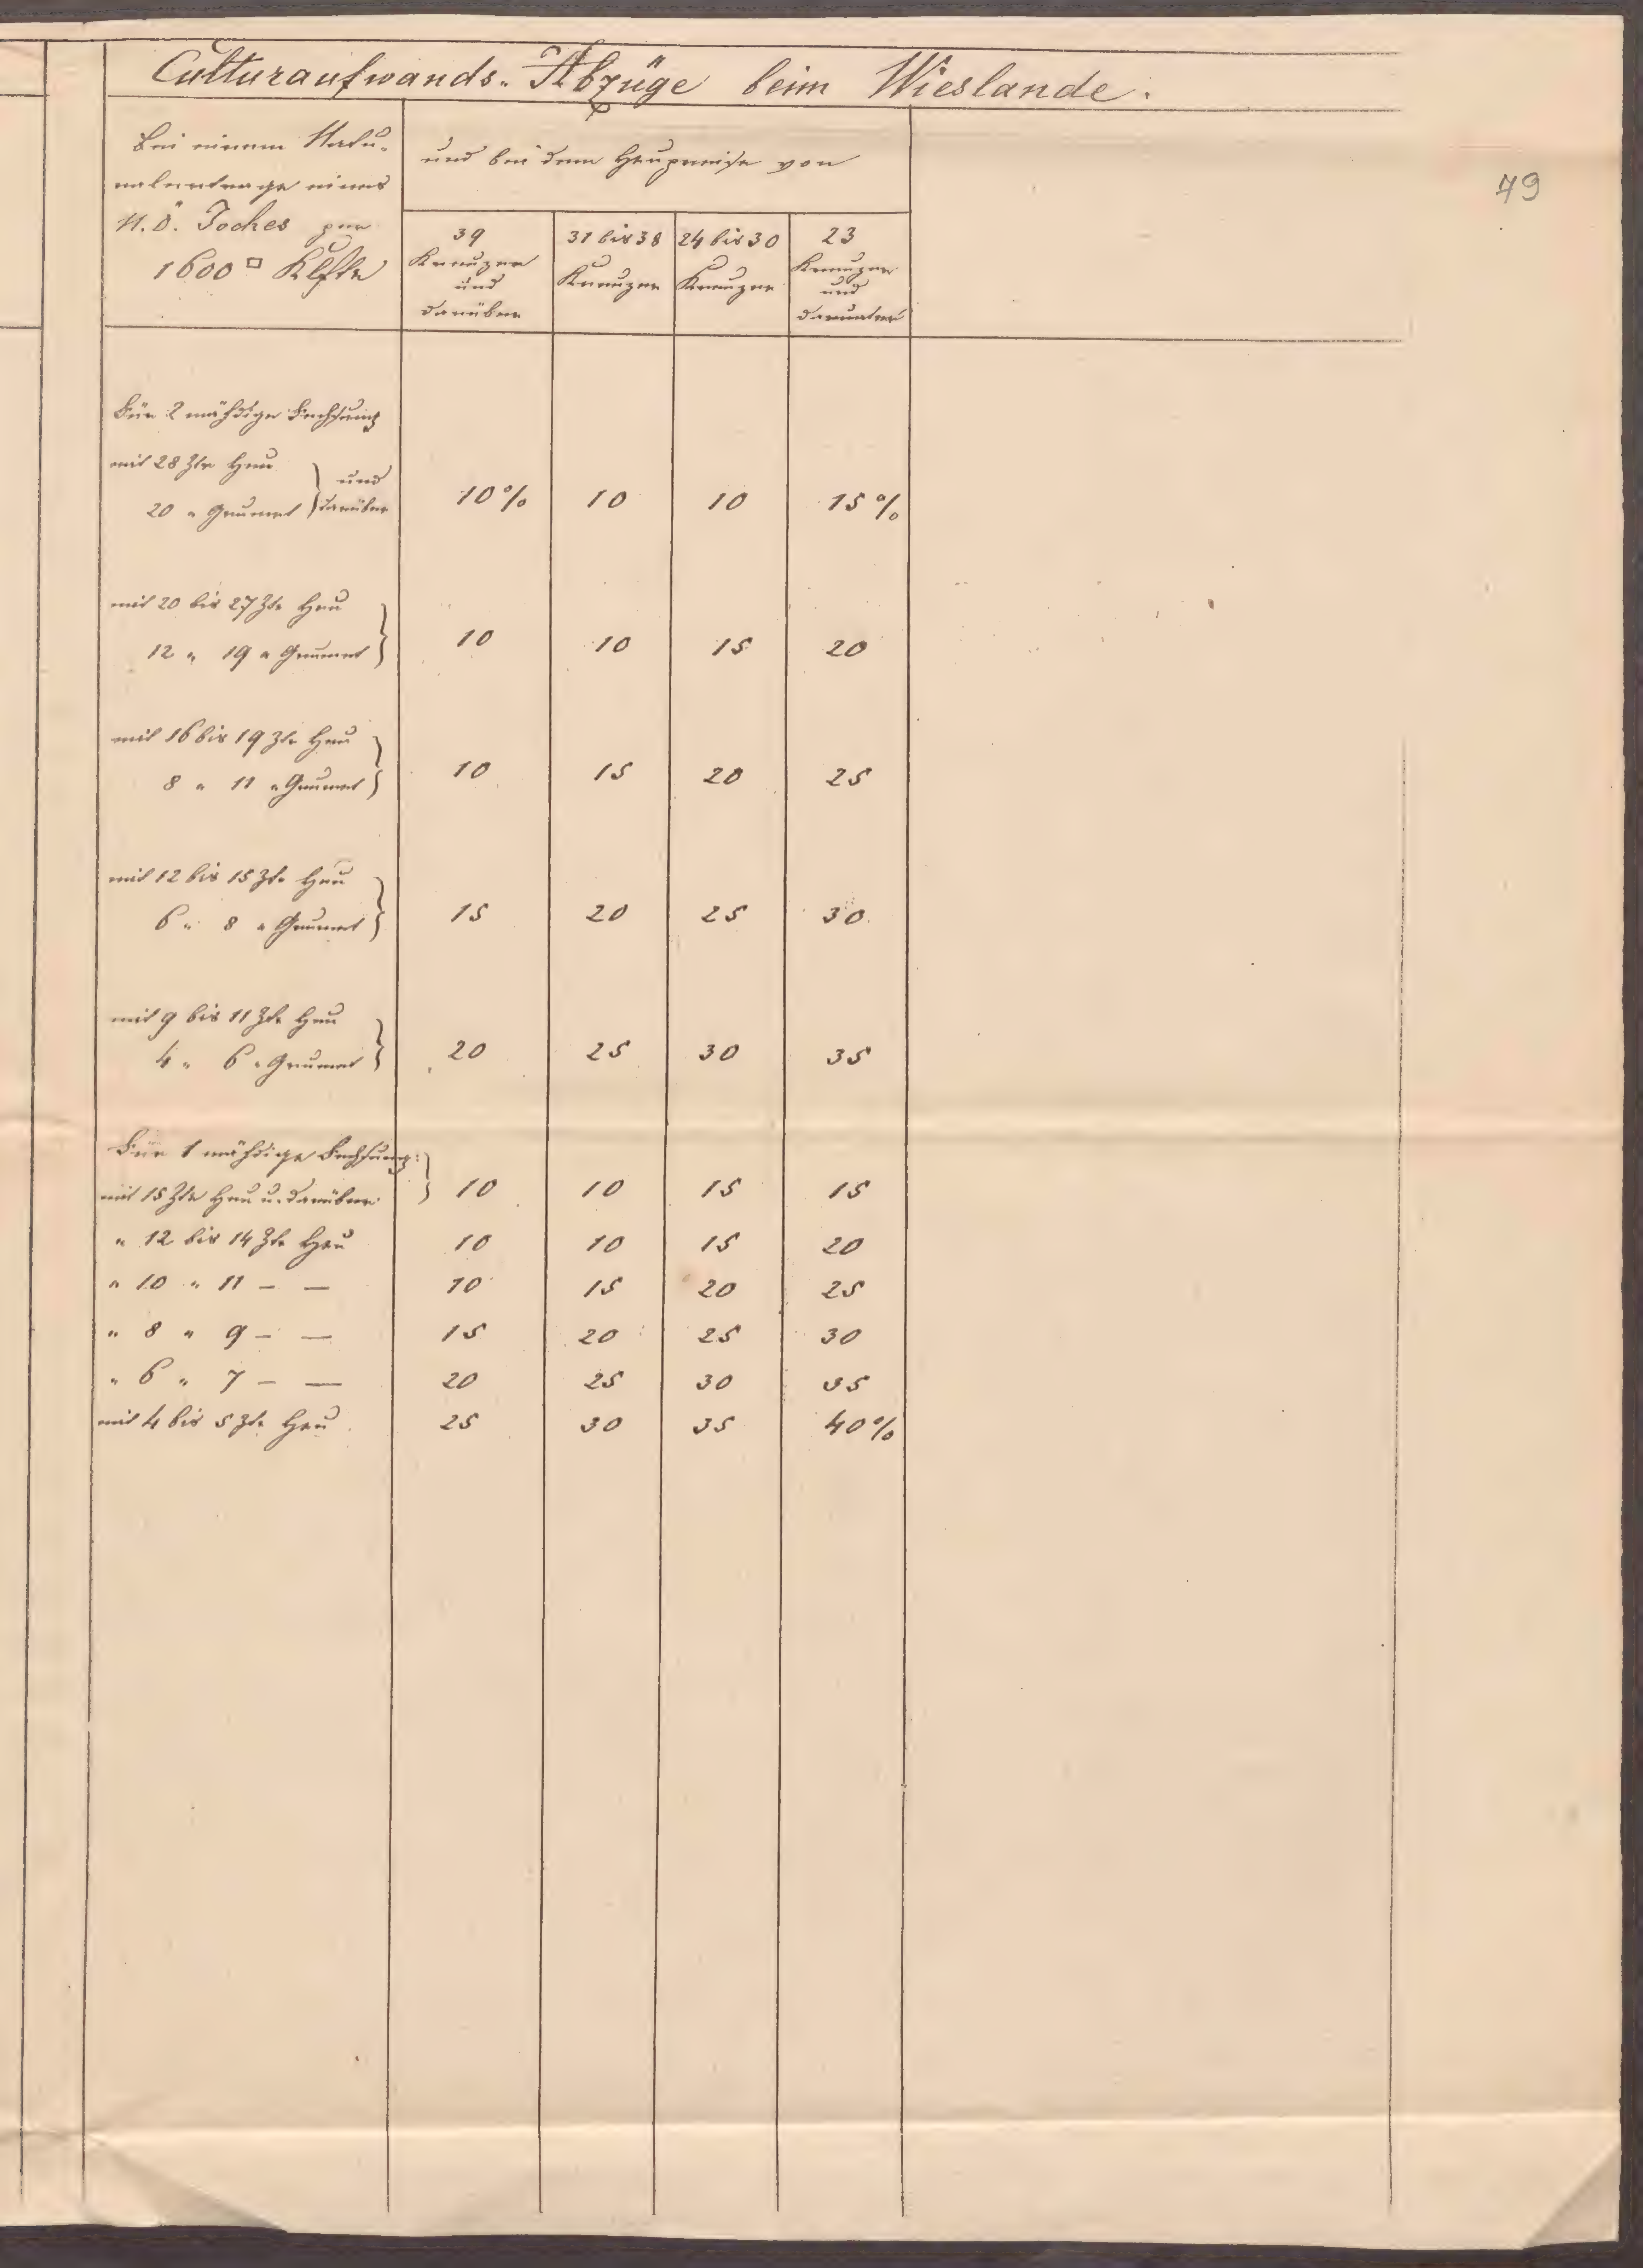 Culturaufwands-Abzüge beim Wieslande.
79
Bei einem Natu-
ralertrage eines
N. Ö. Joches per
1600 □ Klftr
und bei dem Heupreise von
39 Kreuzer und darüber
31 bis 38 Kreuzer
24 bis 30 Kreuzer
23 Kreuzer und darunter
Für 2 mähdige Fechsung
mit 28 Ztr Heu } und
20 " Grumet } darüber 10% 10 10 15%
mit 20 bis 27 Ztr Heu }
12 " 19 " Grumet } 10 10 15 20
mit 16 bis 19 Ztr Heu }
8 " 11 " Grumet } 10 15 20 25
mit 12 bis 15 Ztr Heu }
6 " 8 " Grumet } 15 20 25 30
mit 9 bis 11 Ztr Heu }
4 " 6 " Grumet } 20 25 30 35
Für 1 mähdige Fechsung: }
mit 15 Ztr Heu u. darüber } 10 10 15 15
" 12 bis 14 Ztr Heu 10 10 15 20
" 10 " 11 — — 10 15 20 25
" 8 " 9 — — 15 20 25 30
" 6 " 7 — — 20 25 30 35
mit 4 bis 5 Ztr Heu 25 30 35 40%